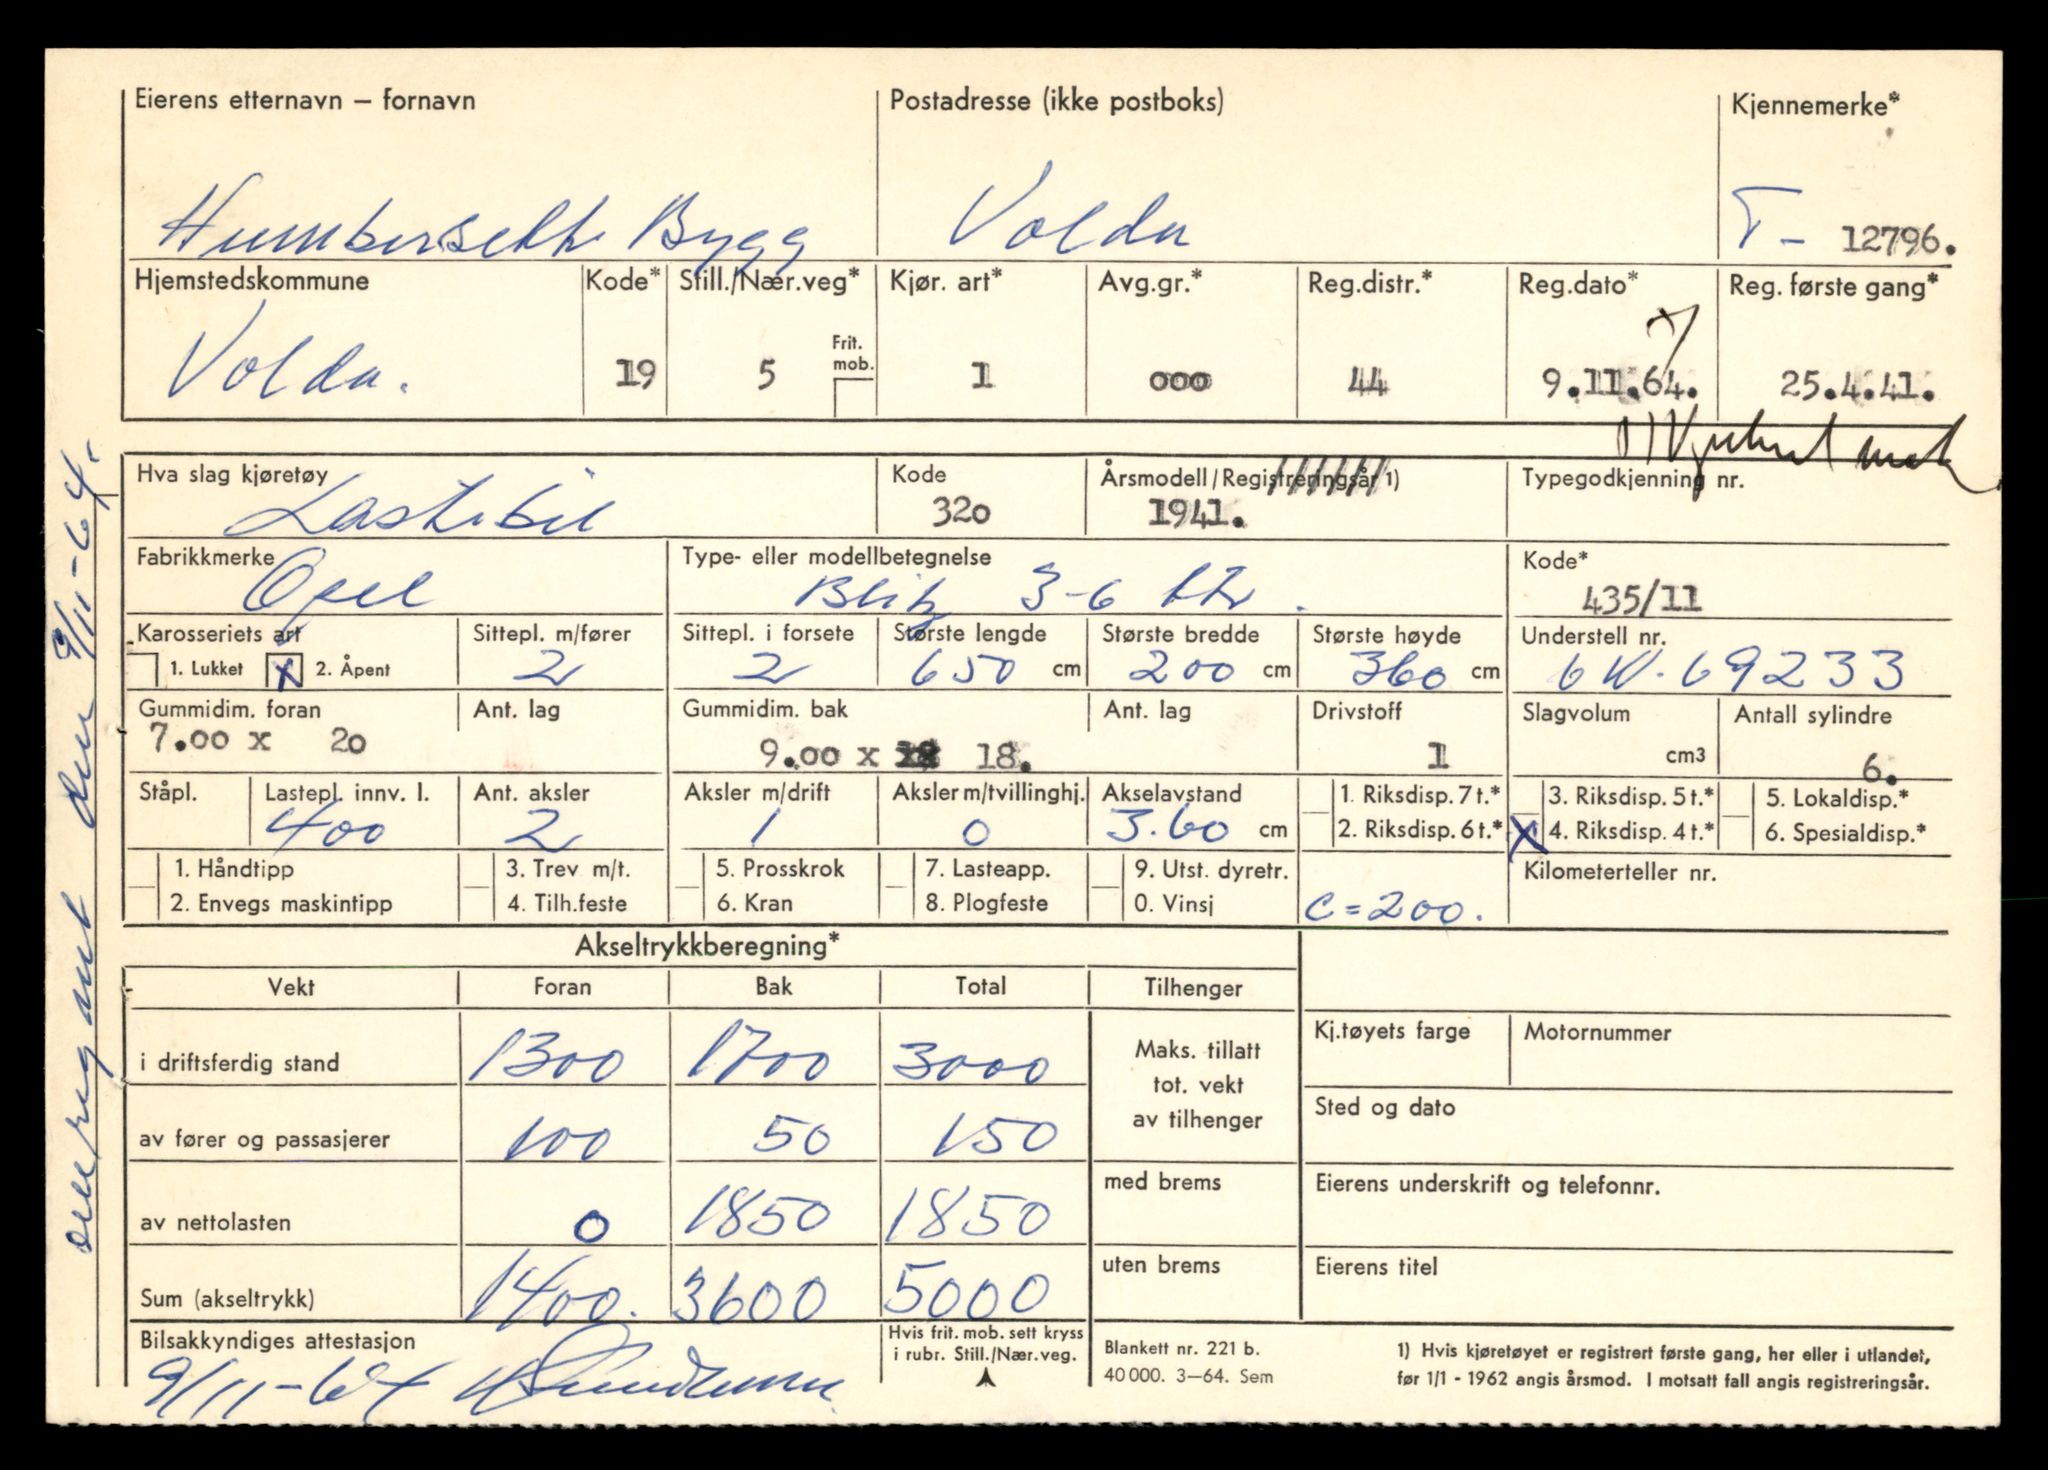 Eierens etternavn – fornavn
Postadresse (ikke postboks)
Kjennemerke*
Humberseth Bygg
Volda
T- 12796.
Hjemstedskommune
Kode*
Still./Nær.veg*
Kjør. art*
Avg.gr.*
Reg.distr.*
Reg.dato*
Reg. første gang*
Volda.
19
5
Frit. mob.
1
000
44
9.11.64.
25.4.41.
Hva slag kjøretøy
Kode
Årsmodell/Registreringsår 1)
Typegodkjenning nr.
Lastebil
320
1941.
Fabrikkmerke
Type- eller modellbetegnelse
Kode*
Opel
Blitz 3-6
435/11
Karosseriets art
Sittepl. m/fører
Sittepl. i forsete
Største lengde
Største bredde
Største høyde
Understell nr.
1. Lukket
X 2. Åpent
2
2
650 cm
200 cm
360 cm
6W-69233
Gummidim. foran
Ant. lag
Gummidim. bak
Ant. lag
Drivstoff
Slagvolum
Antall sylindre
7.00 x 20
9.00 x 18.
1
cm3
6.
Ståpl.
Lastepl. innv. l.
Ant. aksler
Aksler m/drift
Aksler m/tvillinghj.
Akselavstand
1. Riksdisp. 7 t.*
3. Riksdisp. 5 t.*
5. Lokaldisp.*
400
2
1
0
3.60 cm
2. Riksdisp. 6 t.*
X 4. Riksdisp. 4 t.*
6. Spesialdisp.*
1. Håndtipp
3. Trev m/t.
5. Prosskrok
7. Lasteapp.
9. Utst. dyretr.
Kilometerteller nr.
2. Envegs maskintipp
4. Tilh.feste
6. Kran
8. Plogfeste
0. Vinsj
C=200.
Akseltrykkberegning*
Vekt
Foran
Bak
Total
Tilhenger
i driftsferdig stand
1300
1700
3000
Maks. tillatt
tot. vekt
av tilhenger
Kj.tøyets farge
Motornummer
av fører og passasjerer
100
50
150
Sted og dato
av nettolasten
0
1850
1850
med brems
Eierens underskrift og telefonnr.
Sum (akseltrykk)
1400.
3600
5000
uten brems
Eierens titel
Bilsakkyndiges attestasjon
9/11-64
Hvis frit. mob. sett kryss
i rubr. Still./Nær.veg.
Blankett nr. 221 b.
40 000. 3–64. Sem
1) Hvis kjøretøyet er registrert første gang, her eller i utlandet,
før 1/1 - 1962 angis årsmod. I motsatt fall angis registreringsår.
den 9/11-64.